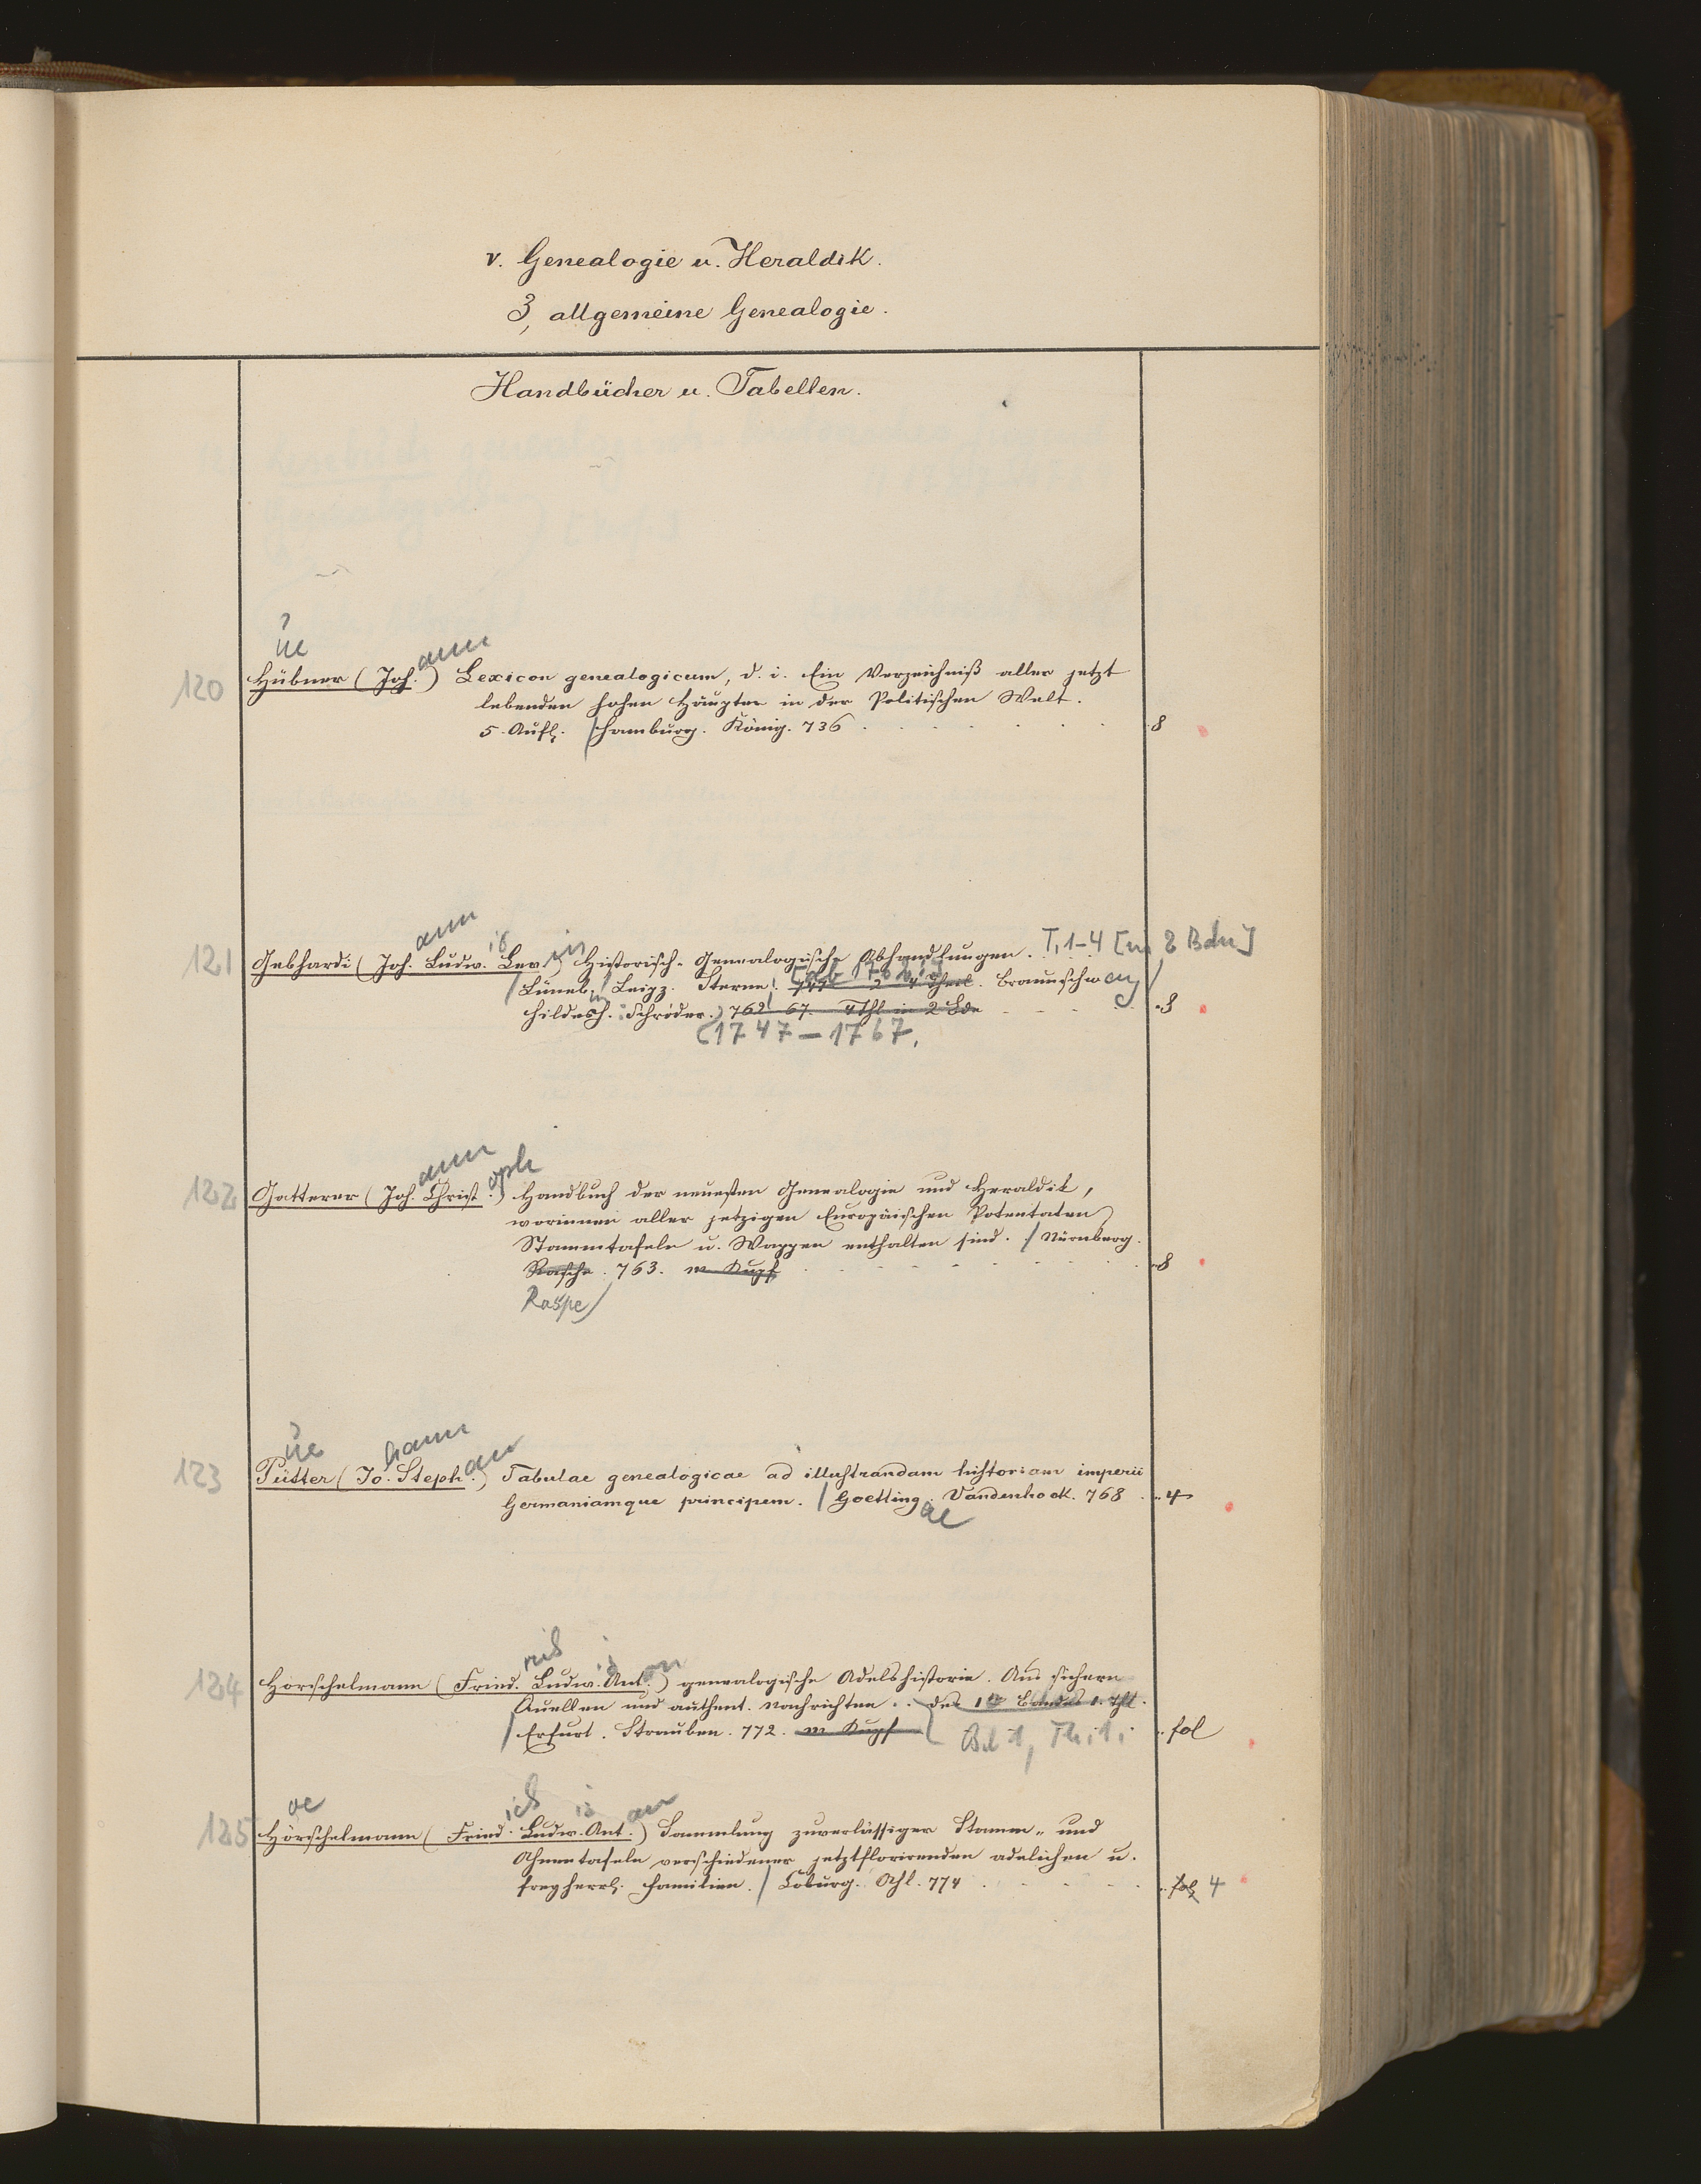 v. Genealogie u. Heraldik.
3, allgemeine Genealogie.
Handbücher u. Tabellen.
üe ann
120 Hübner (Joh.) Lexicon genealogicum, d. i. Ein Verzeichniß aller jetzt
lebenden hohen Häupter in der Politischen Welt.
5. Aufl. / Hamburg. König. 736 8
ann is in
121 Gebhardi (Joh. Ludw. Lev.) Historisch-Genealogische Abhandlungen. T. 1-4 [in 2 Bdn]
/ Lüneb. / Leipz. Sterne. 747 Theil. Braunschweig /
Hildesh. Schröder.) 762 67. 4 Thl in 2 Bde 8
(1747-1767.
ann oph
122 Gatterer (Joh. Christ.) Handbuch der neuesten Genealogie und Heraldik,
worinnen aller jetzigen Europäischen Potentaten
Stammtafeln u. Wappen enthalten sind. / Nürnberg.
Rasche. 763. m Kupf 8
Raspe /
üe hann an
123 Pütter (Jo. Steph.) Tabulae genealogicae ad illustrandam historiam imperii
Germaniamque principem. / Goetting. Vandenhoek. 768 4
ae
rich on
124 Hörschelmann (Fried. Ludw. Ant.) genealogische Adelshistorie. Aus sichern
Quellen und authent. Nachrichten .. des 1ten Bandes 1. Thl.
/ Erfurt. Strauben. 772. m Kupf Bd 1, Th. 1. fol
oe ich is on
125 Hörschelmann (Fried. Ludw. Ant.) Sammlung zuverlässiger Stamm- und
Ahnentafeln verschiedener jetztflorirenden adelichen u.
freyherrl. Familien. / Coburg. Ahl. 774 fol 4